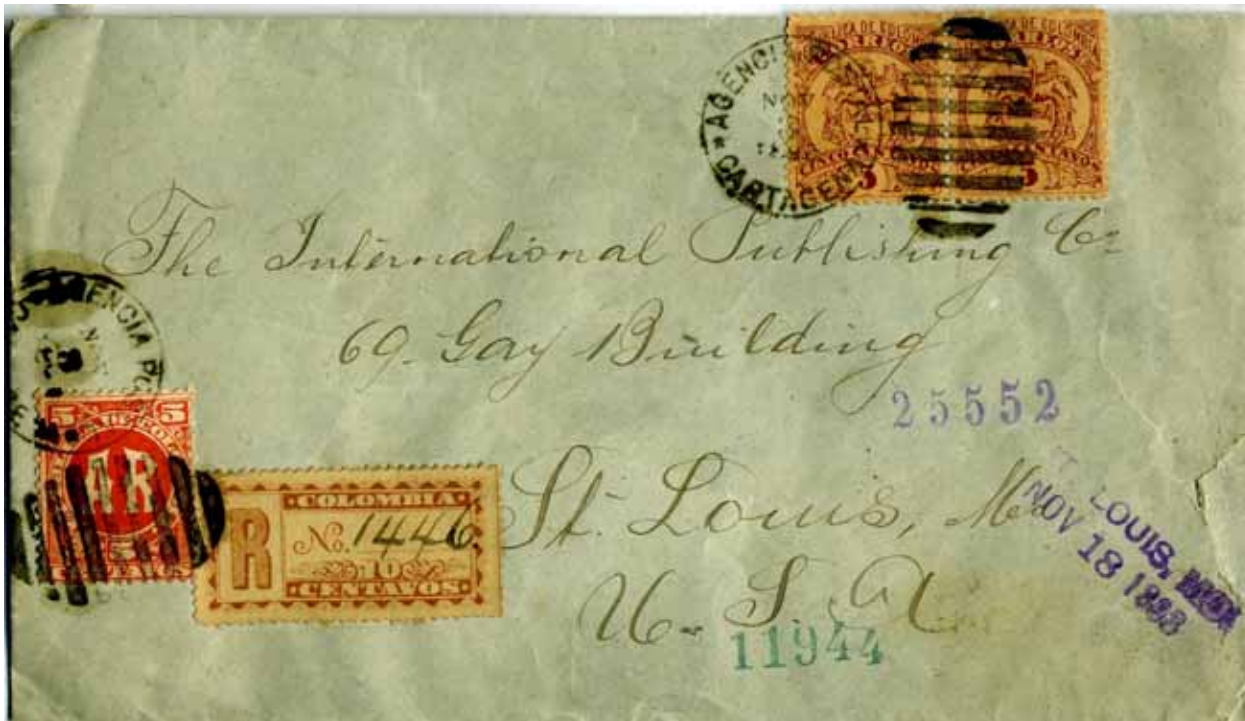 CORREOS
CINCO CENTAVOS
5
5
AGENCIA
NOV
CARTAGENA
The International Publishing Co
69. Gay Building
25552
St. Louis, Mo
U. S. A
LOUIS, MO.
NOV 18 1898
11944
AGENCIA
5 5
AR
COLOMBIA
R No. 1446
10
CENTAVOS